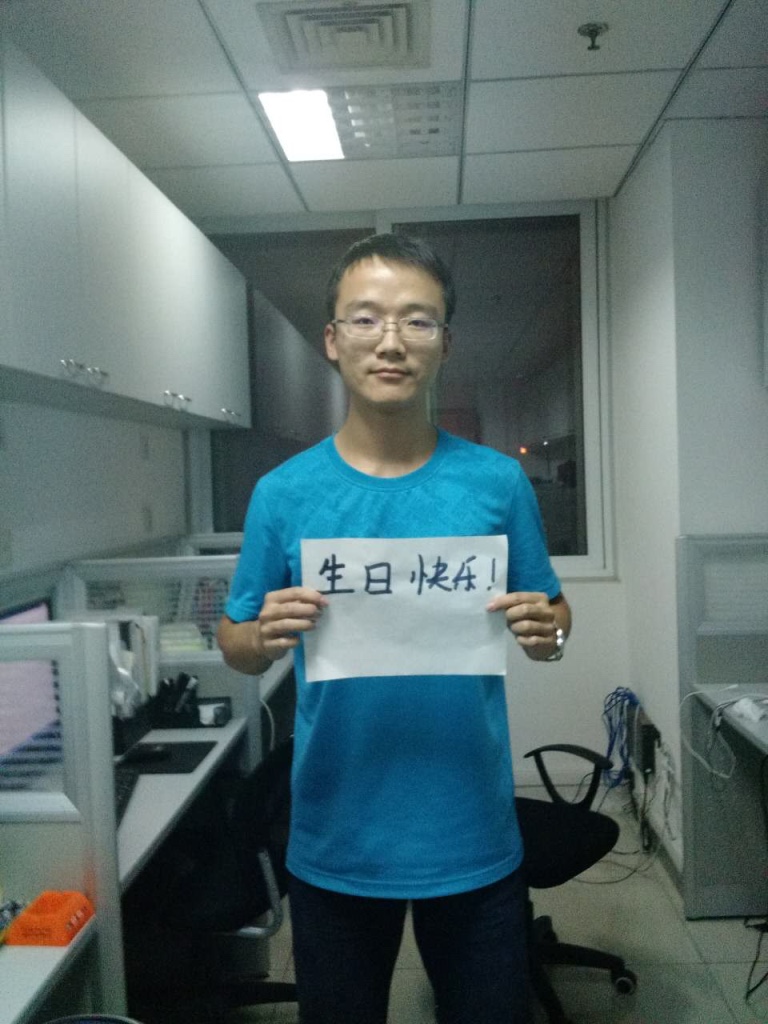 生日快乐!